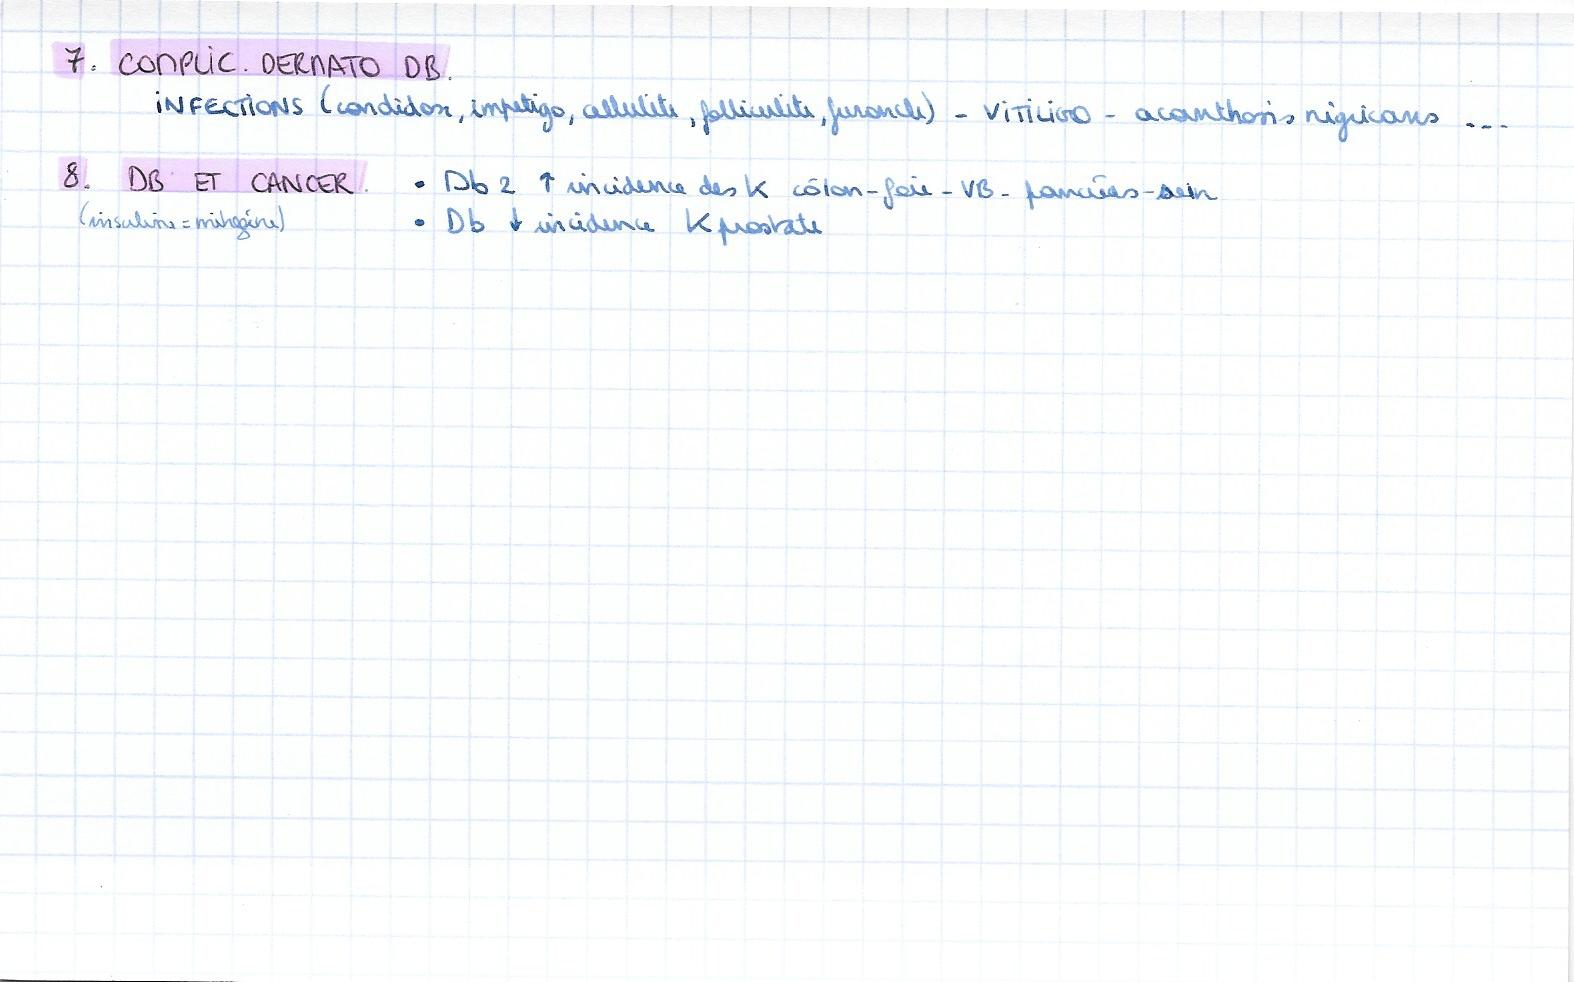 7. COMPLIC. DERMATO DB.
INFECTIONS (candidose, impétigo, cellulite, folliculite, furoncle) - VITILIGO - acanthosis nigricans ...
8. DB ET CANCER. • Db 2 ↑ incidence des K côlon - foie - VB - pancréas - sein
(insuline = mitogène) • Db ↓ incidence K prostate